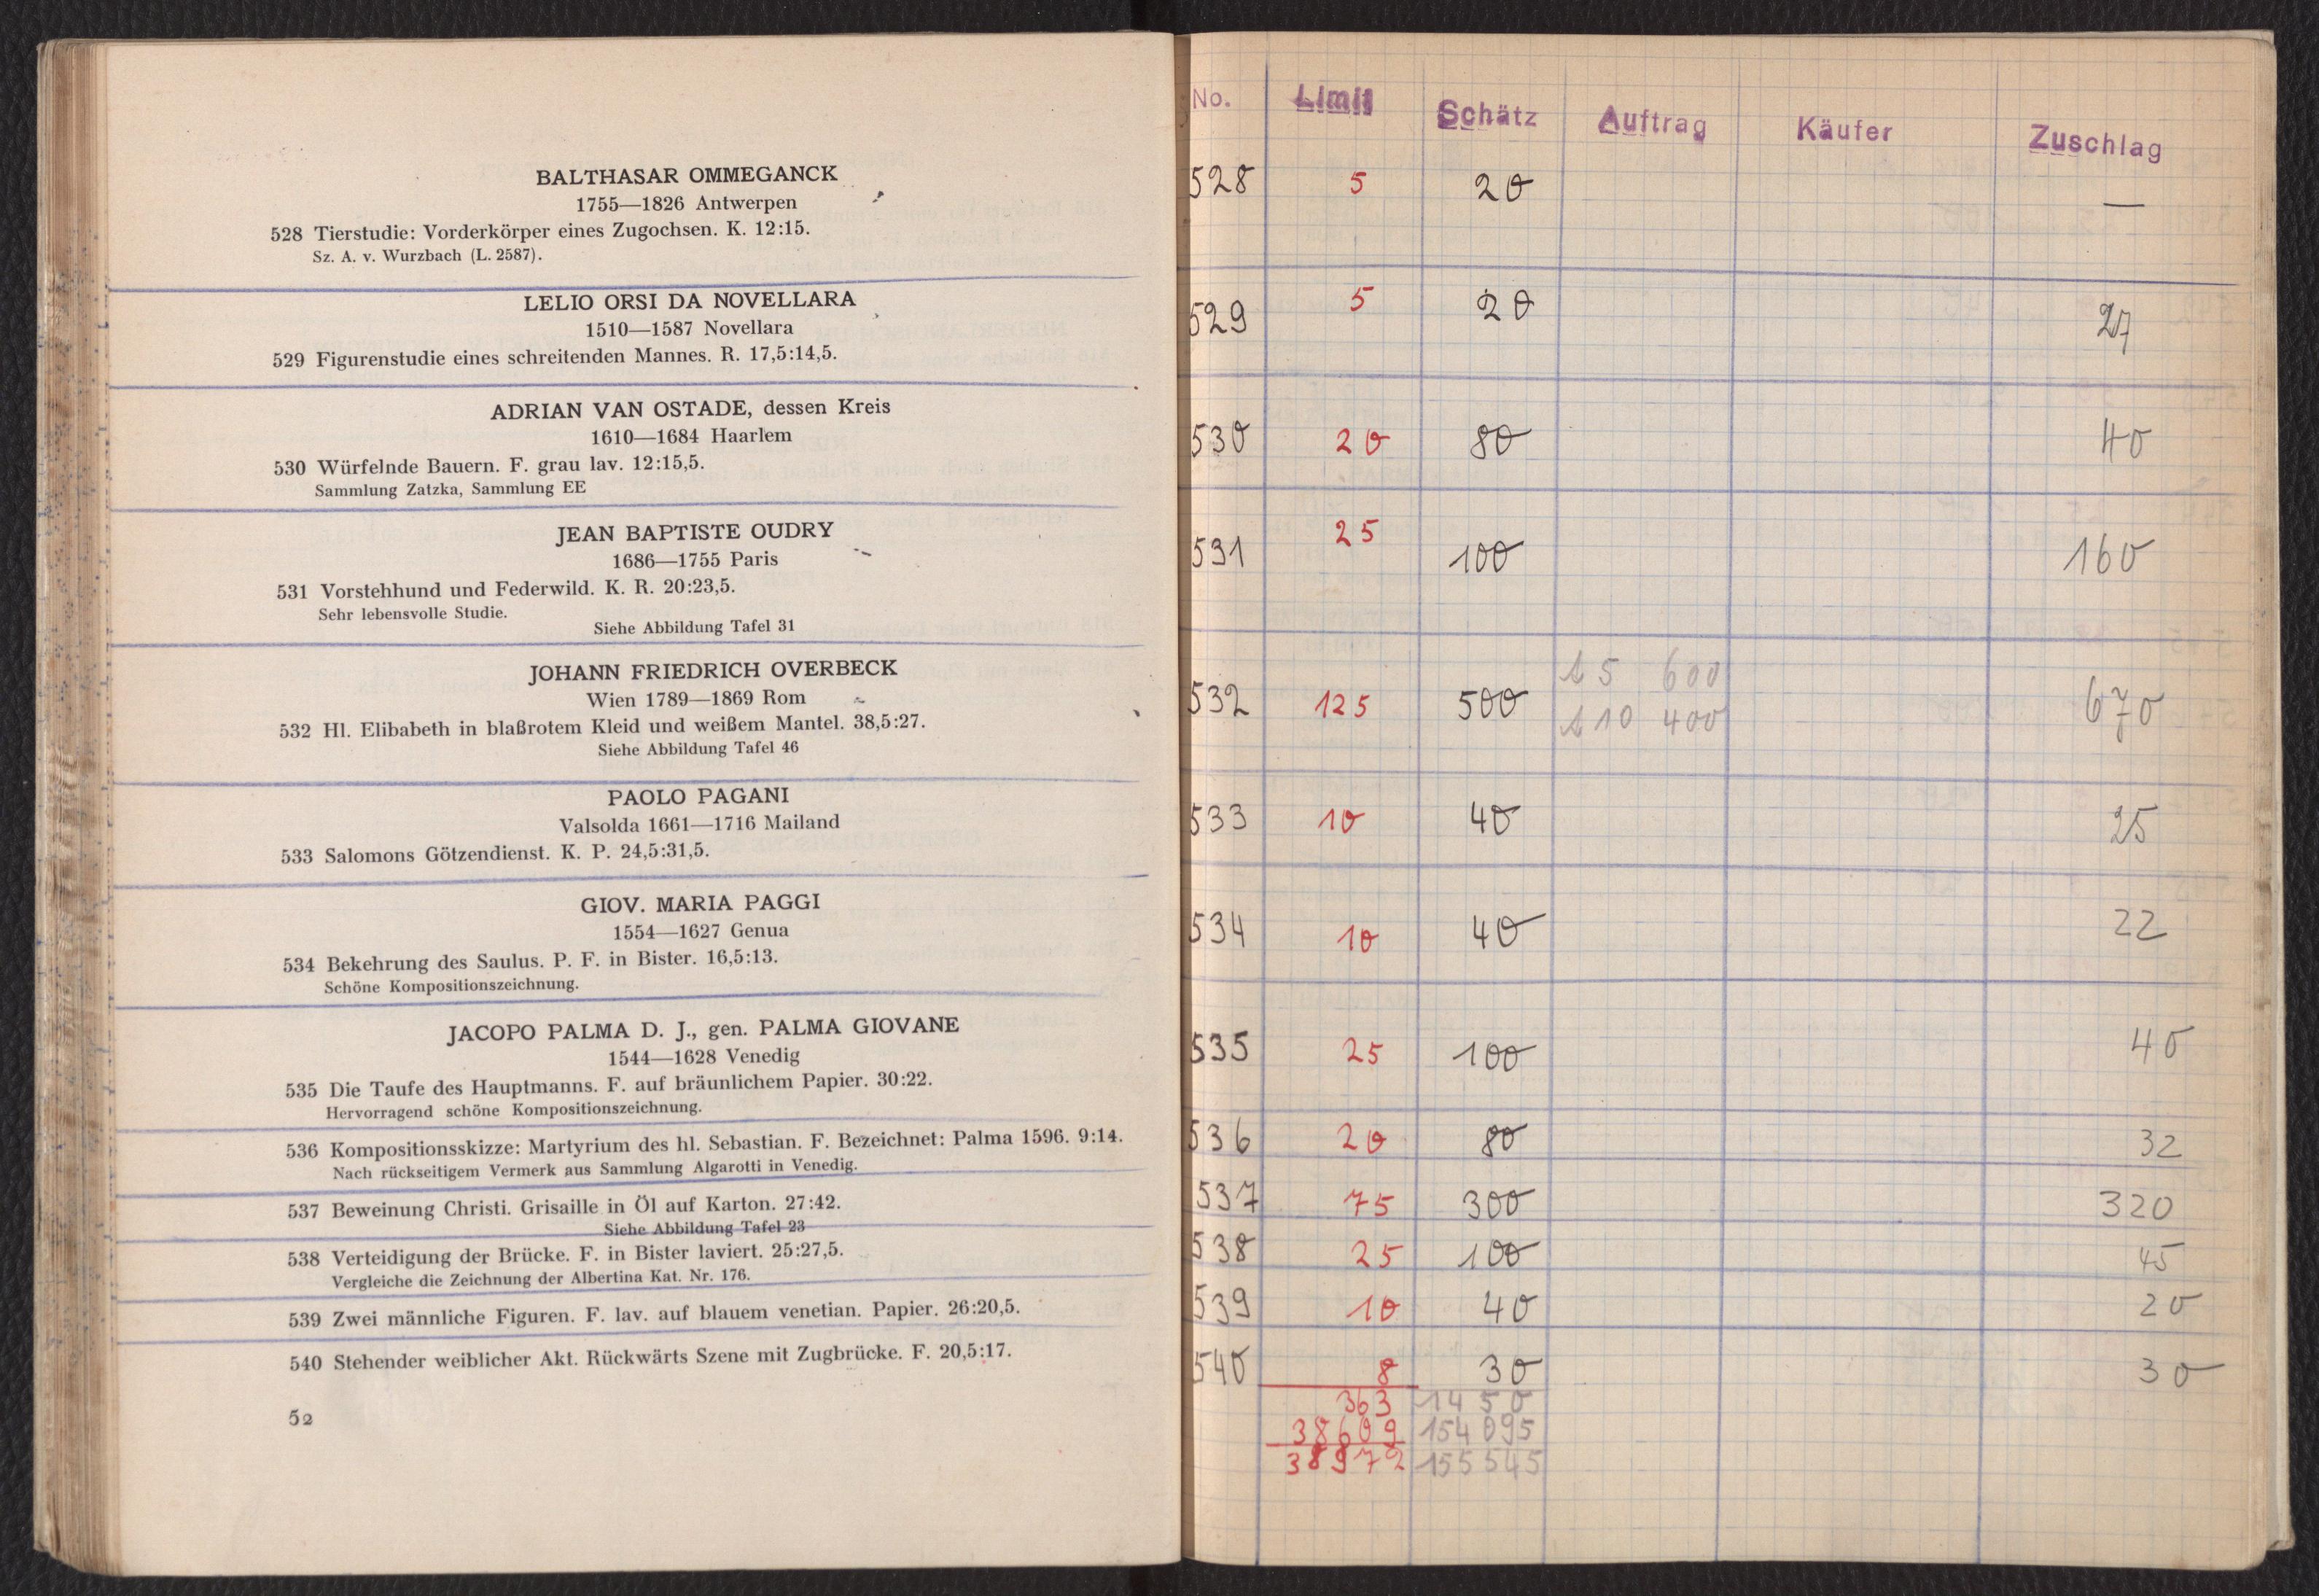 BALTHASAR OMMEGANCK
1755—1826 Antwerpen
528 Tierstudie: Vorderkörper eines Zugochsen. K. 12:15.
Sz. A. v. Wurzbach (L. 2587).
LELIO ORSI DA NOVELLARA
1510—1587 Novellara
529 Figurenstudie eines schreitenden Mannes. R. 17,5:14,5.
ADRIAN VAN OSTADE, dessen Kreis
1610—1684 Haarlem
530 Würfelnde Bauern. F. grau lav. 12:15,5.
Sammlung Zatzka, Sammlung EE
JEAN BAPTISTE OUDRY
1686—1755 Paris
531 Vorstehhund und Federwild. K. R. 20:23,5.
Sehr lebensvolle Studie.
Siehe Abbildung Tafel 31
JOHANN FRIEDRICH OVERBECK
Wien 1789—1869 Rom
532 Hl. Elibabeth in blaßrotem Kleid und weißem Mantel. 38,5:27.
Siehe Abbildung Tafel 46
PAOLO PAGANI
Valsolda 1661—1716 Mailand
533 Salomons Götzendienst. K. P. 24,5:31,5.
GIOV. MARIA PAGGI
1554—1627 Genua
534 Bekehrung des Saulus. P. F. in Bister. 16,5:13.
Schöne Kompositionszeichnung.
JACOPO PALMA D. J., gen. PALMA GIOVANE
1544—1628 Venedig
535 Die Taufe des Hauptmanns. F. auf bräunlichem Papier. 30:22.
Hervorragend schöne Kompositionszeichnung.
536 Kompositionsskizze: Martyrium des hl. Sebastian. F. Bezeichnet: Palma 1596. 9:14.
Nach rückseitigem Vermerk aus Sammlung Algarotti in Venedig.
537 Beweinung Christi. Grisaille in Öl auf Karton. 27:42.
Siehe Abbildung Tafel 23
538 Verteidigung der Brücke. F. in Bister laviert. 25:27,5.
Vergleiche die Zeichnung der Albertina Kat. Nr. 176.
539 Zwei männliche Figuren. F. lav. auf blauem venetian. Papier. 26:20,5.
540 Stehender weiblicher Akt. Rückwärts Szene mit Zugbrücke. F. 20,5:17.
52
No. Limit Schätz Auftrag Käufer Zuschlag
528 5 20 —
529 5 20 27
530 20 80 40
531 25 100 160
532 125 500 5 600 670
10 400
533 10 40 25
534 10 40 22
535 25 100 40
536 20 80 32
537 75 300 320
538 25 100 45
539 10 40 20
540 8 30 30
363 1450
38609 154095
38972 155545